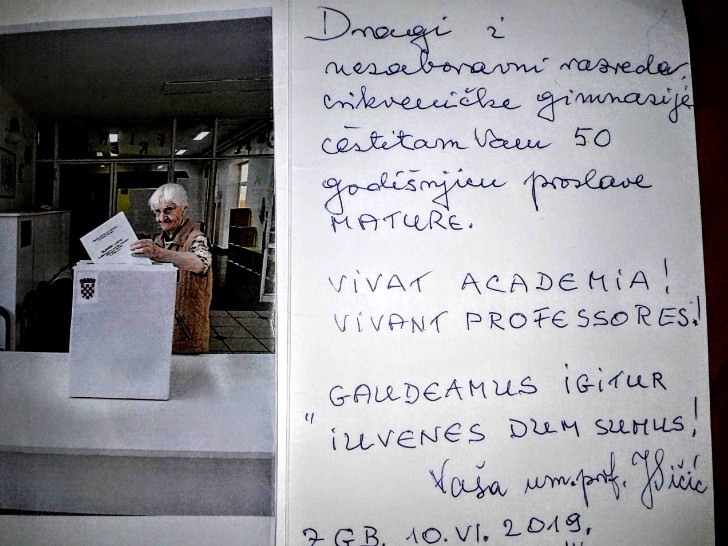 Dragi i
nezaboravni razrede
crikveničke gimnazije
čestitam Vam 50
godišnjicu proslave
MATURE.
VIVAT ACADEMIA!
VIVANT PROFESSORES!
GAUDEAMUS IGITUR
" IUVENES DUM SUMUS!
Vaša um. prof.
ZGB. 10. VI. 2019.